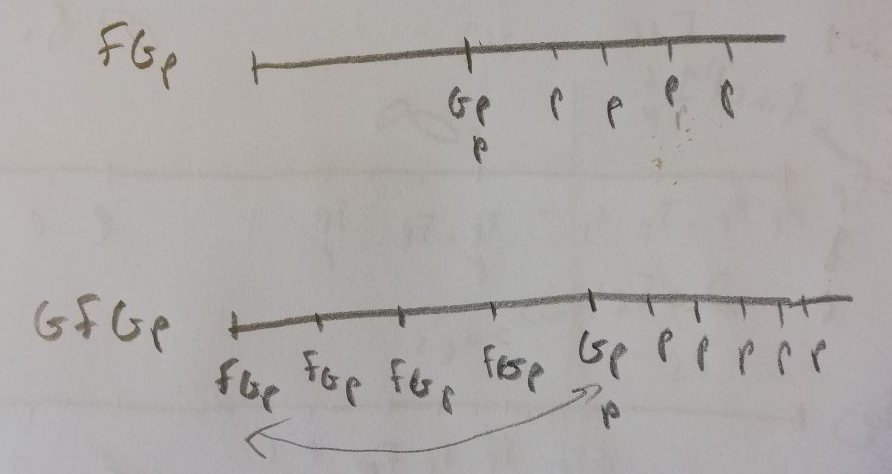 FGp
Gp p p p p
p
GFGp
FGp FGp FGp FGp Gp p p p p p
p